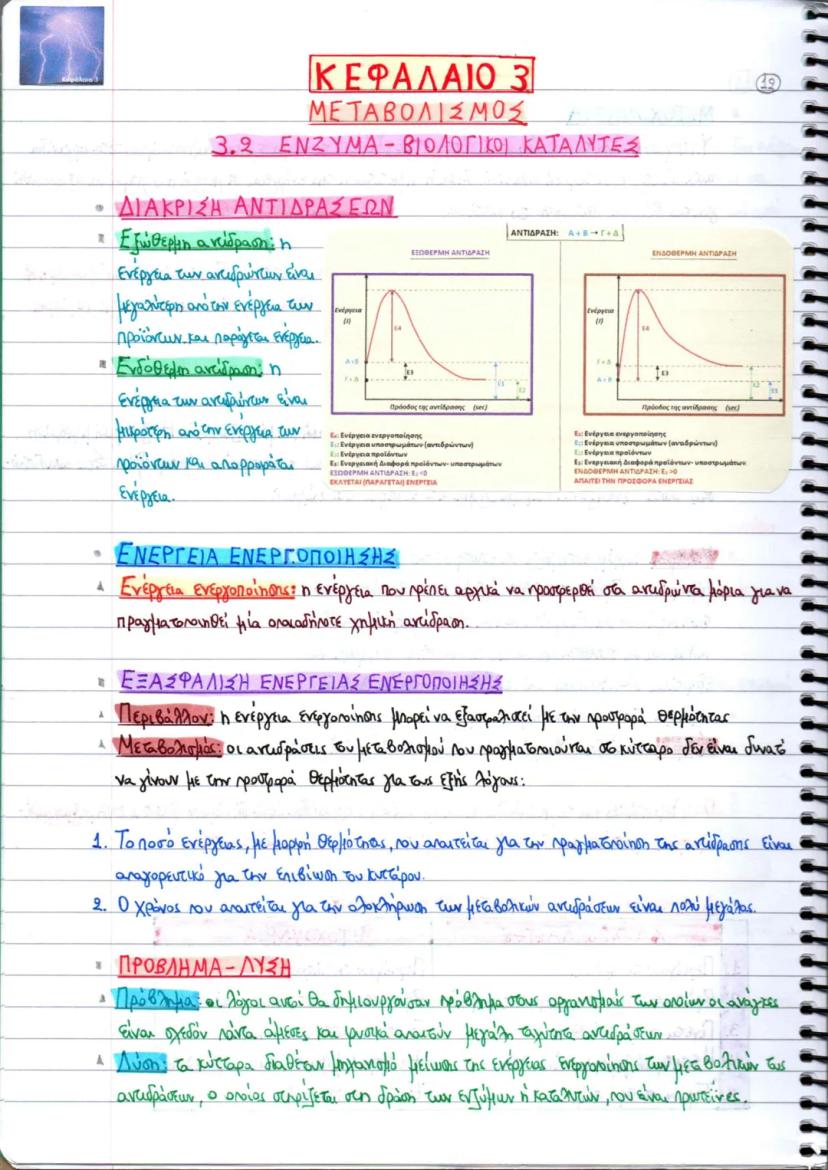 Κεφάλαιο 3
ΚΕΦΑΛΑΙΟ 3
19
ΜΕΤΑΒΟΛΙΣΜΟΣ
3.2 ΕΝΖΥΜΑ - ΒΙΟΛΟΓΙΚΟΙ ΚΑΤΑΛΥΤΕΣ
ΔΙΑΚΡΙΣΗ ΑΝΤΙΔΡΑΣΕΩΝ
Εξώθερμη αντίδραση: η
ενέργεια των αντιδρώντων είναι
μεγαλύτερη από την ενέργεια των
προϊόντων και παράγεται ενέργεια.
Ενδόθερμη αντίδραση: η
ενέργεια των αντιδρώντων είναι
μικρότερη από την ενέργεια των
προϊόντων και απορροφάται
ενέργεια.
ΑΝΤΙΔΡΑΣΗ: Α + Β → Γ + Δ
ΕΞΩΘΕΡΜΗ ΑΝΤΙΔΡΑΣΗ
Ενέργεια
(J)
E4
Α+Β
E3
Γ+Δ
E1
E2
Πρόοδος της αντίδρασης (sec)
Ε4: Ενέργεια ενεργοποίησης
Ε1: Ενέργεια υποστρωμάτων (αντιδρώντων)
Ε2: Ενέργεια προϊόντων
Ε3: Ενεργειακή Διαφορά προϊόντων- υποστρωμάτων
ΕΞΩΘΕΡΜΗ ΑΝΤΙΔΡΑΣΗ: Ε3 <0
ΕΚΛΥΕΤΑΙ (ΠΑΡΑΓΕΤΑΙ) ΕΝΕΡΓΕΙΑ
ΕΝΔΟΘΕΡΜΗ ΑΝΤΙΔΡΑΣΗ
Ενέργεια
(J)
E4
Γ+Δ
E3
Α+Β
E2
E1
Πρόοδος της αντίδρασης (sec)
Ε4: Ενέργεια ενεργοποίησης
Ε1: Ενέργεια υποστρωμάτων (αντιδρώντων)
Ε2: Ενέργεια προϊόντων
Ε3: Ενεργειακή Διαφορά προϊόντων- υποστρωμάτων
ΕΝΔΟΘΕΡΜΗ ΑΝΤΙΔΡΑΣΗ: Ε3 >0
ΑΠΑΙΤΕΙ ΤΗΝ ΠΡΟΣΦΟΡΑ ΕΝΕΡΓΕΙΑΣ
ΕΝΕΡΓΕΙΑ ΕΝΕΡΓΟΠΟΙΗΣΗΣ
Ενέργεια ενεργοποίησης: η ενέργεια που πρέπει αρχικά να προσφερθεί στα αντιδρώντα μόρια για να
πραγματοποιηθεί μία οποιαδήποτε χημική αντίδραση.
ΕΞΑΣΦΑΛΙΣΗ ΕΝΕΡΓΕΙΑΣ ΕΝΕΡΓΟΠΟΙΗΣΗΣ
Περιβάλλον: η ενέργεια ενεργοποίησης μπορεί να εξασφαλιστεί με την προσφορά θερμότητας
Μεταβολισμός: οι αντιδράσεις του μεταβολισμού που πραγματοποιούνται στο κύτταρο δεν είναι δυνατό
να γίνουν με την προσφορά θερμότητας για τους εξής λόγους:
1. Το ποσό ενέργειας, με μορφή θερμότητας, που απαιτείται για την πραγματοποίηση της αντίδρασης είναι
απαγορευτικό για την επιβίωση του κυττάρου.
2. Ο χρόνος που απαιτείται για την ολοκλήρωση των μεταβολικών αντιδράσεων είναι πολύ μεγάλος.
ΠΡΟΒΛΗΜΑ - ΛΥΣΗ
Πρόβλημα: οι λόγοι αυτοί θα δημιουργούσαν πρόβλημα στους οργανισμούς των οποίων οι ανάγκες
είναι σχεδόν πάντα άμεσες και φυσικά απαιτούν μεγάλη ταχύτητα αντιδράσεων.
Λύση: τα κύτταρα διαθέτουν μηχανισμό μείωσης της ενέργειας ενεργοποίησης των μεταβολικών τους
αντιδράσεων, ο οποίος στηρίζεται στη δράση των ενζύμων ή καταλυτών, που είναι πρωτεΐνες.